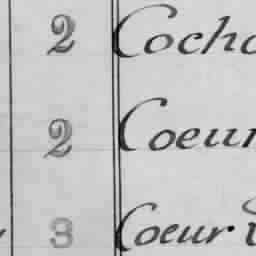 2 Coch
2 Coeur
3 Coeur